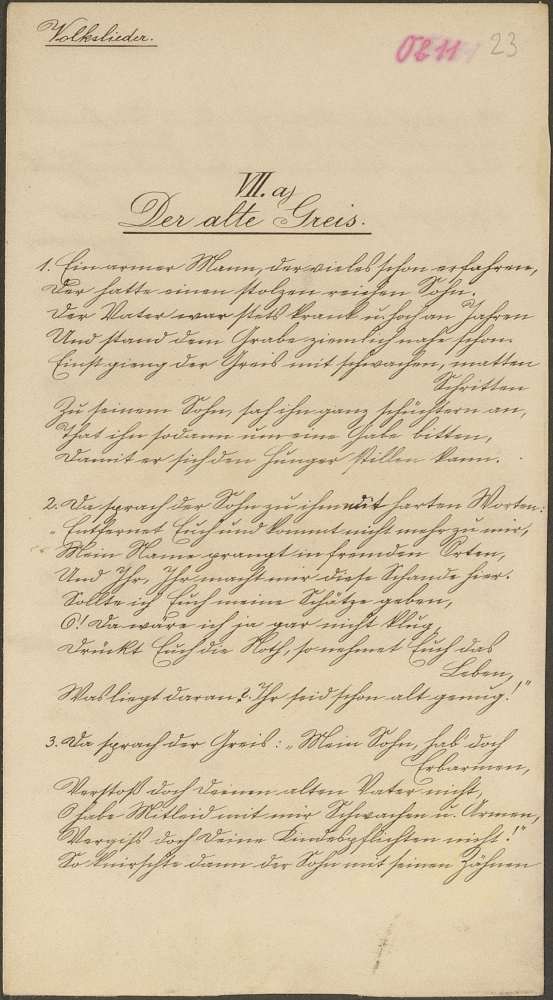 Volkslieder.
0611 23
VII. a)
Der alte Greis.
1. Ein armer Mann, der vieles schon erfahren,
Der hatte einen stolzen reichen Sohn.
Der Vater war stets krank u. hoch an Jahren
Und stand dem Grabe ziemlich nahe schon.
Einst gieng der Greis mit schwachen, matten
Schritten
Zu seinem Sohn, sah ihn ganz schüchtern an,
That ihn sodann um eine Gabe bitten,
Damit er sich den Hunger stillen kann.
2. Da sprach der Sohn zu ihm mit harten Worten:
"Entfernet Euch und kommt nicht mehr zu mir,
Mein Name prangt in fremden Orten,
Und Ihr, Ihr macht mir diese Schande hier.
Sollte ich Euch meine Schätze geben,
O! Da wäre ich ja gar nicht klug,
Drückt Euch die Noth, so nehmet Euch das
Leben,
Was liegt daran? Ihr seid schon alt genug!"
3. Da sprach der Greis: "Mein Sohn, hab' doch
Erbarmen,
Verstoß doch Deinen alten Vater nicht,
O habe Mitleid mit mir Schwachen u. Armen,
Vergiss doch Deine Kindespflichten nicht!"
So knirschte dann der Sohn mit seinen Zähnen